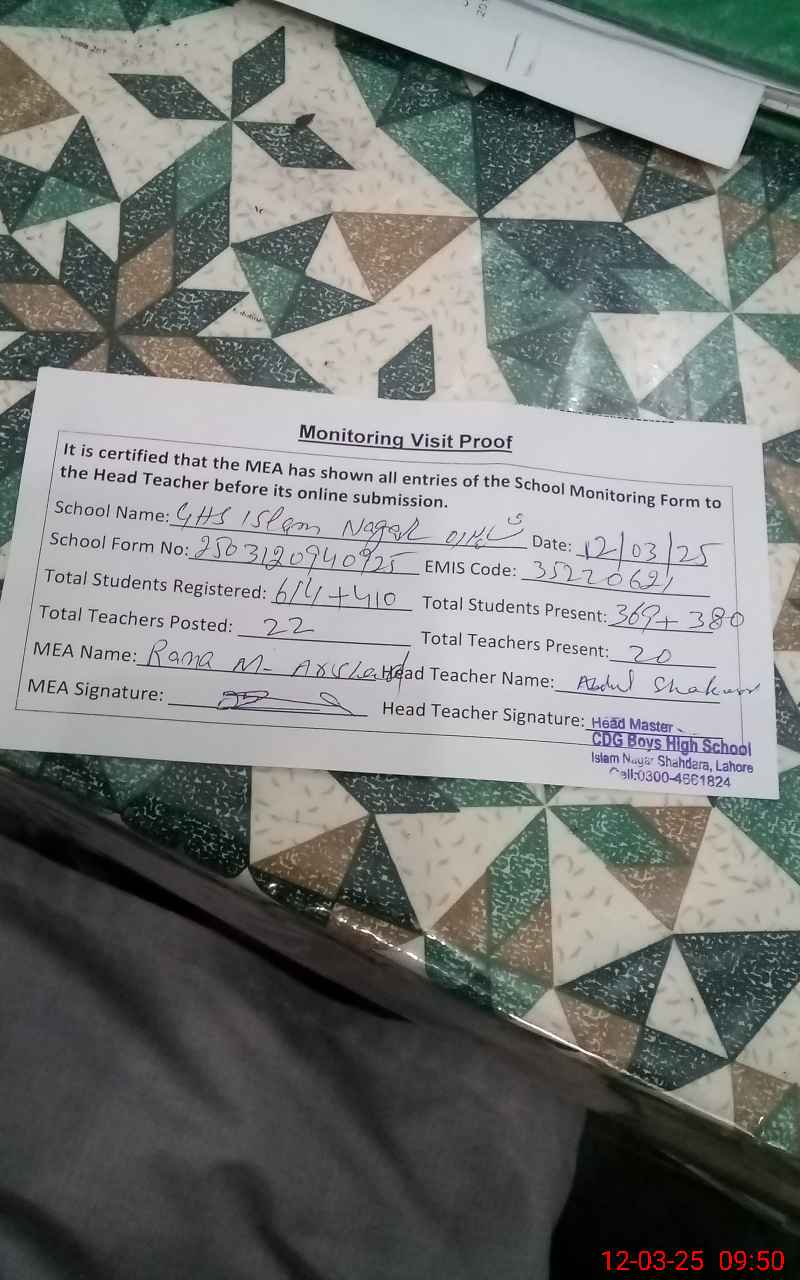 Monitoring Visit Proof
It is certified that the MEA has shown all entries of the School Monitoring Form to
the Head Teacher before its online submission.
School Name: GHS Islam Nagar Date: 12/03/25
School Form No: 250312094025 EMIS Code: 35220621
Total Students Registered: 614+410 Total Students Present: 369+380
Total Teachers Posted: 22 Total Teachers Present: 20
MEA Name: Rana M- Head Teacher Name: Abdul Shakoor
MEA Signature: Head Teacher Signature:
Head Master
CDG Boys High School
Islam Nagar Shahdara, Lahore
Cell:0300-4661824
12-03-25 09:50